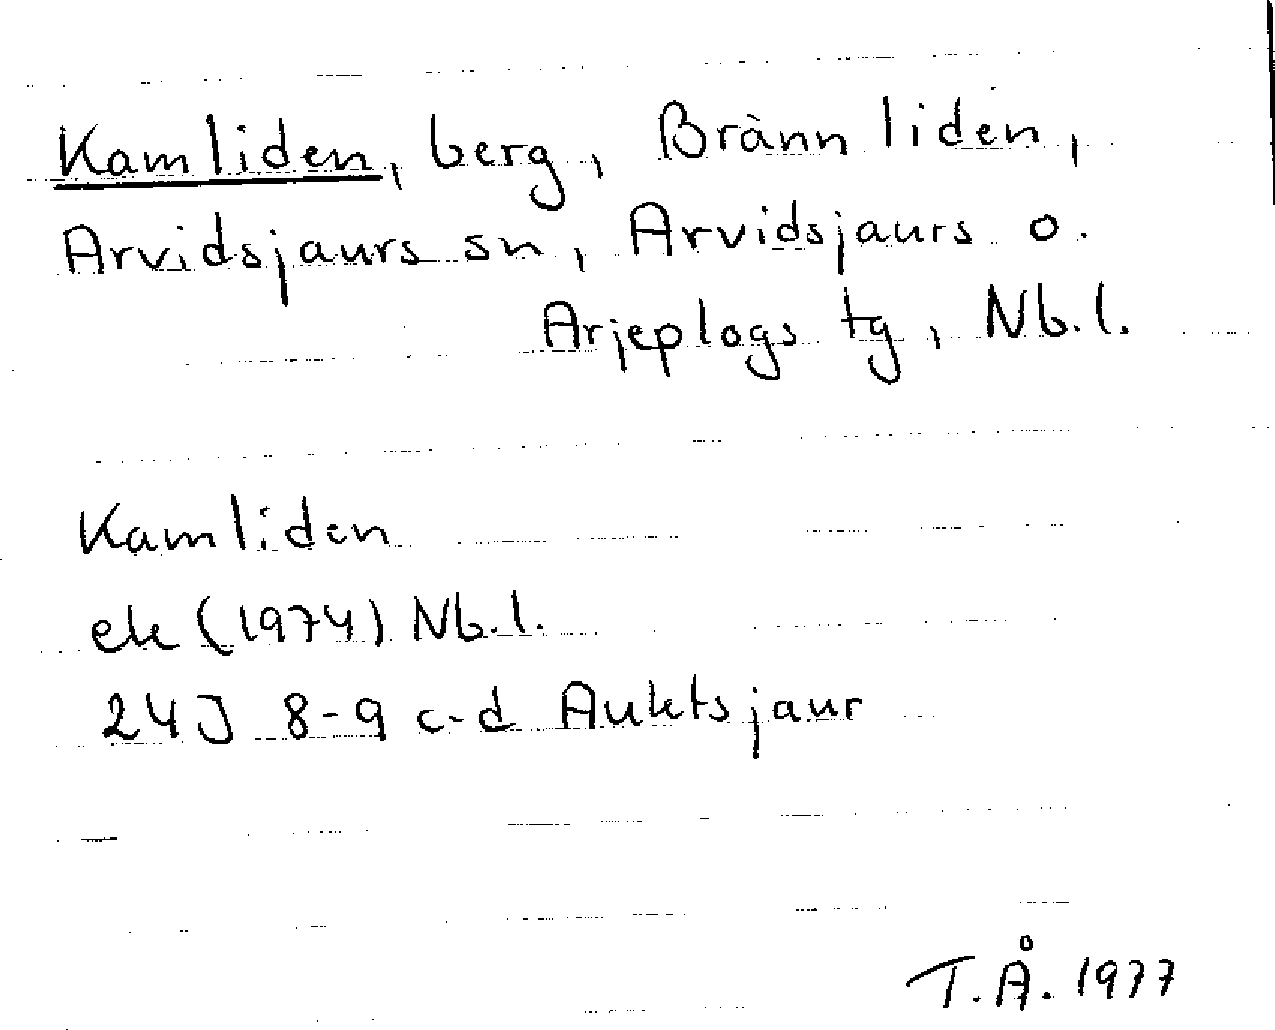 Kamliden, berg, Brännliden,
Arvidsjaurs sn, Arvidsjaurs o.
Arjeplogs tg, Nb.l.
Kamliden
ek (1974) Nb.l.
24J 8-9 c-d Auktsjaur
T.Å. 1977